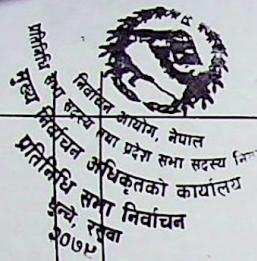 निर्वाचन आयोग, नेपाल
प्रतिनिधि सभा सदस्य तथा प्रदेश सभा सदस्य
मुख्य निर्वाचन अधिकृतको कार्यालय
प्रतिनिधि सभा निर्वाचन
धुन्चे, रसुवा
२०७९